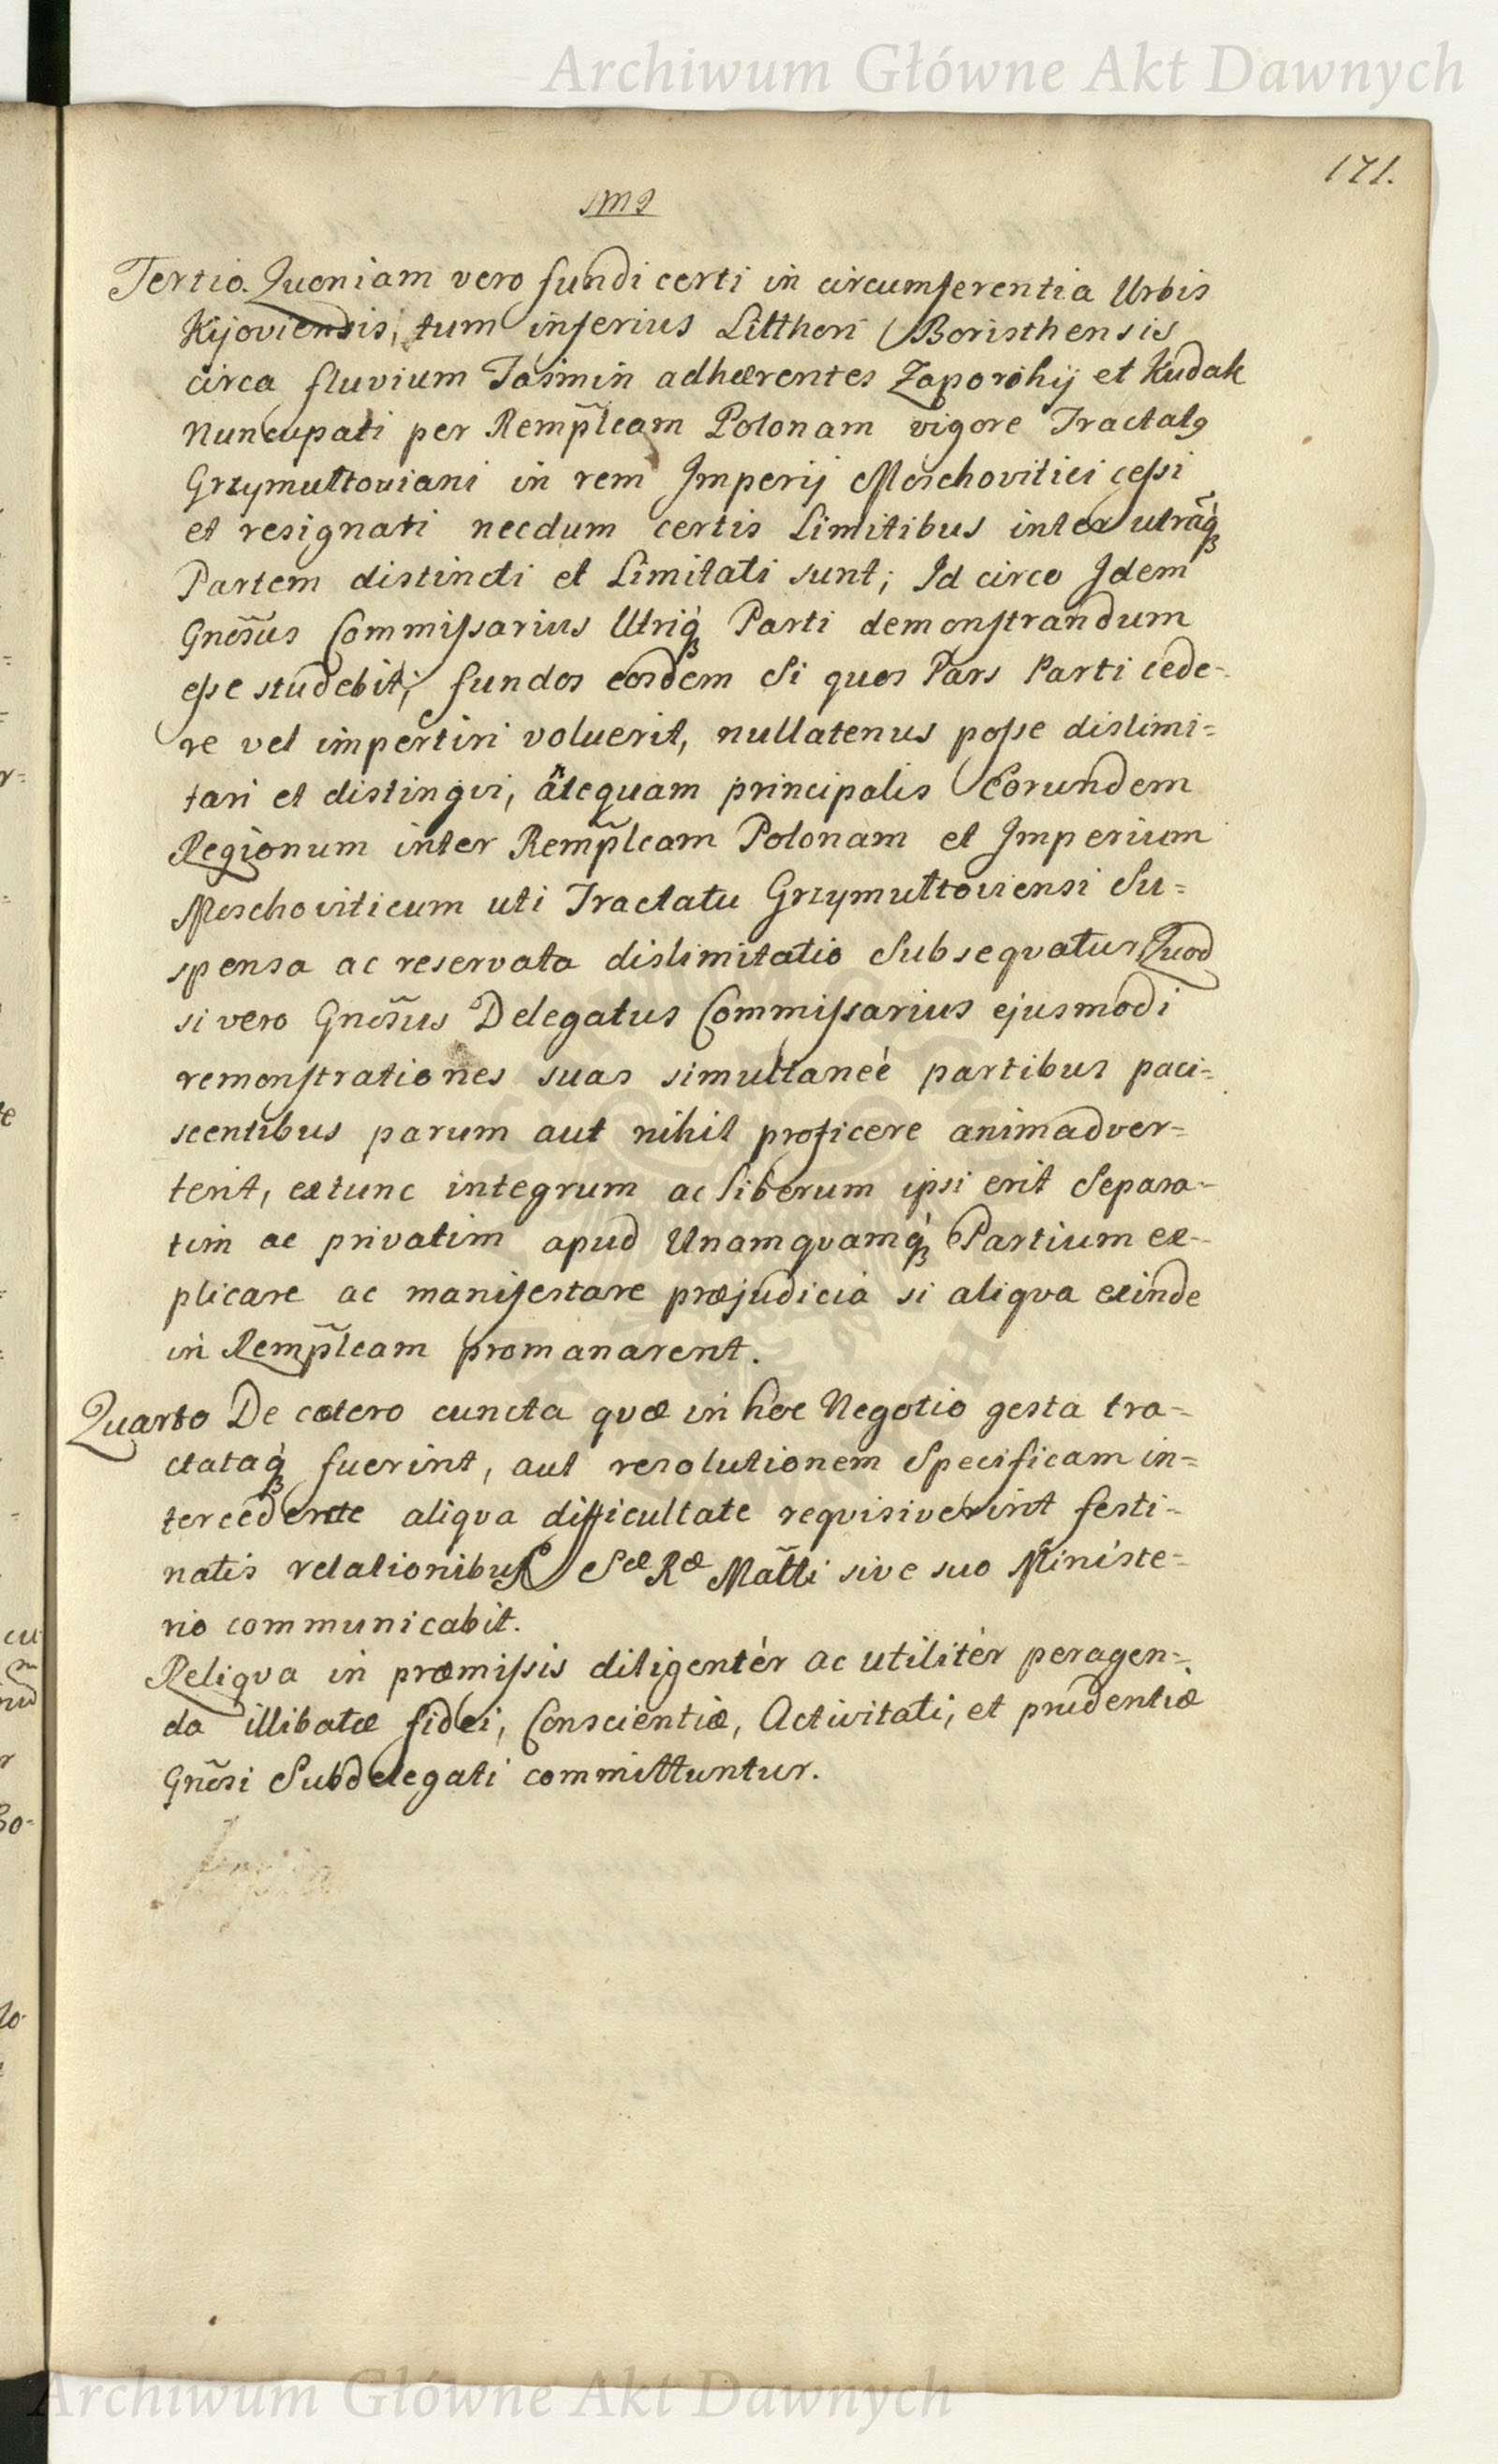 Archiwum Główne Akt Dawnych
171.
Tertio. Quoniam vero fundi certi in circumferentia Urbis
Kijoviensis, tum inferius Litthori Boristhensis
circa fluvium Tasmin adhærentes Zaporohij et Kudak
Nuncupati per Remp̃lcam Polonam vigore Tractatꝰ
Grzymultoviani in rem Imperij Moschovitici ceſsi
et resignati necdum certis Limitibus inter utrāq́ꝫ
Partem distincti et Limitati sunt; Id circo Idem
Gnõsus Commiſsarius Utriq́ꝫ Parti demonſtrandum
eſse studebit, fundos eosdem Si quos Pars Parti cede-
re vel impertiri voluerit, nullatenus poſse dislimi=
tari et distingvi, ãtequam principalis Eorundem
Regionum inter Remp̃lcam Polonam et Imperium
Moschoviticum uti Tractatu Grzymultoviensi Su=
spensa ac reservata dislimitatio Subsequatur Quod
si vero Gnõsus Delegatus Commiſsarius ejusmodi
remonſtrationes suas simultaneè partibus paci=
scentibus parum aut nihil proficere animadver=
terit, extunc integrum ac liberum ipsi erit Separa=
tim ac privatim apud Unamquamq́ꝫ Partium ex=
plicare ac manifestare præjudicia si aliqva exinde
in Remp̃lcam promanarent.
Quarto De cætero cuncta quæ in hoc Negotio gesta tra=
ctataq́ꝫ fuerint, aut resolutionem Specificam in=
tercedente aliqva difficultate reqvisiverint festi=
natis relationibus Sæ Ræ Mãtti sive suo Ministe=
rio communicabit.
Reliqva in præmiſsis diligentèr ac utilitèr peragen=
da illibatæ fidei, Conscientiæ, Activitati, et prudentiæ
Gnõsi Subdelegati committuntur.
Archiwum Główne Akt Dawnych